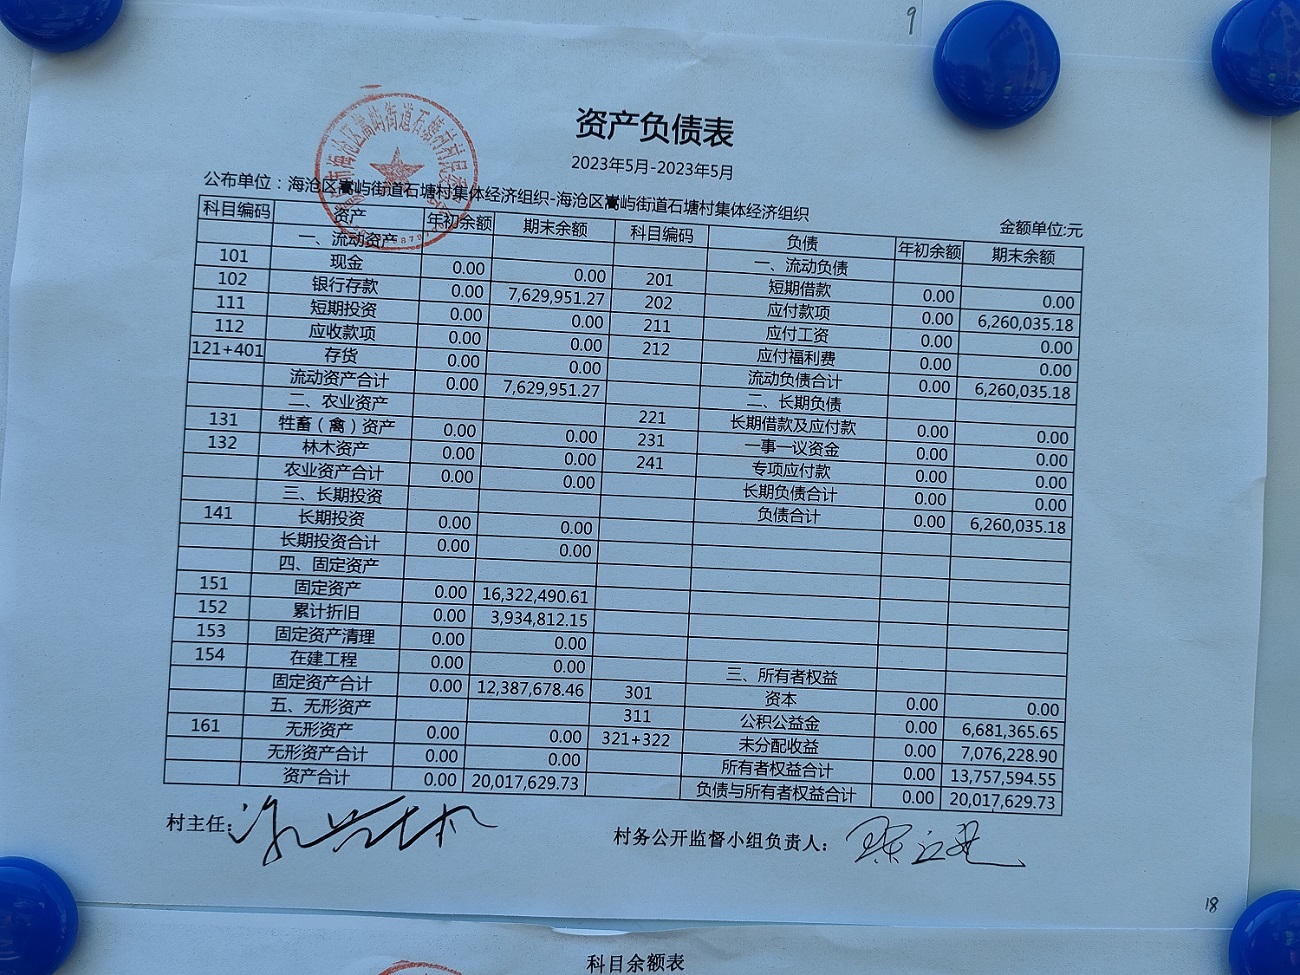 9
资产负债表
2023年5月-2023年5月
公布单位：海沧区嵩屿街道石塘村集体经济组织-海沧区嵩屿街道石塘村集体经济组织
金额单位:元
科目编码 资产 年初余额 期末余额 科目编码 负债 年初余额 期末余额
一、流动资产 一、流动负债
101 现金 0.00 0.00 201 短期借款 0.00 0.00
102 银行存款 0.00 7,629,951.27 202 应付款项 0.00 6,260,035.18
111 短期投资 0.00 0.00 211 应付工资 0.00 0.00
112 应收款项 0.00 0.00 212 应付福利费 0.00 0.00
121+401 存货 0.00 0.00 流动负债合计 0.00 6,260,035.18
流动资产合计 0.00 7,629,951.27 二、长期负债
二、农业资产 221 长期借款及应付款 0.00 0.00
131 牲畜（禽）资产 0.00 0.00 231 一事一议资金 0.00 0.00
132 林木资产 0.00 0.00 241 专项应付款 0.00 0.00
农业资产合计 0.00 0.00 长期负债合计 0.00 0.00
三、长期投资 负债合计 0.00 6,260,035.18
141 长期投资 0.00 0.00
长期投资合计 0.00 0.00
四、固定资产
151 固定资产 0.00 16,322,490.61
152 累计折旧 0.00 3,934,812.15
153 固定资产清理 0.00 0.00
154 在建工程 0.00 0.00 三、所有者权益
固定资产合计 0.00 12,387,678.46 301 资本 0.00 0.00
五、无形资产 311 公积公益金 0.00 6,681,365.65
161 无形资产 0.00 0.00 321+322 未分配收益 0.00 7,076,228.90
无形资产合计 0.00 0.00 所有者权益合计 0.00 13,757,594.55
资产合计 0.00 20,017,629.73 负债与所有者权益合计 0.00 20,017,629.73
村主任：
村务公开监督小组负责人：
18
科目余额表